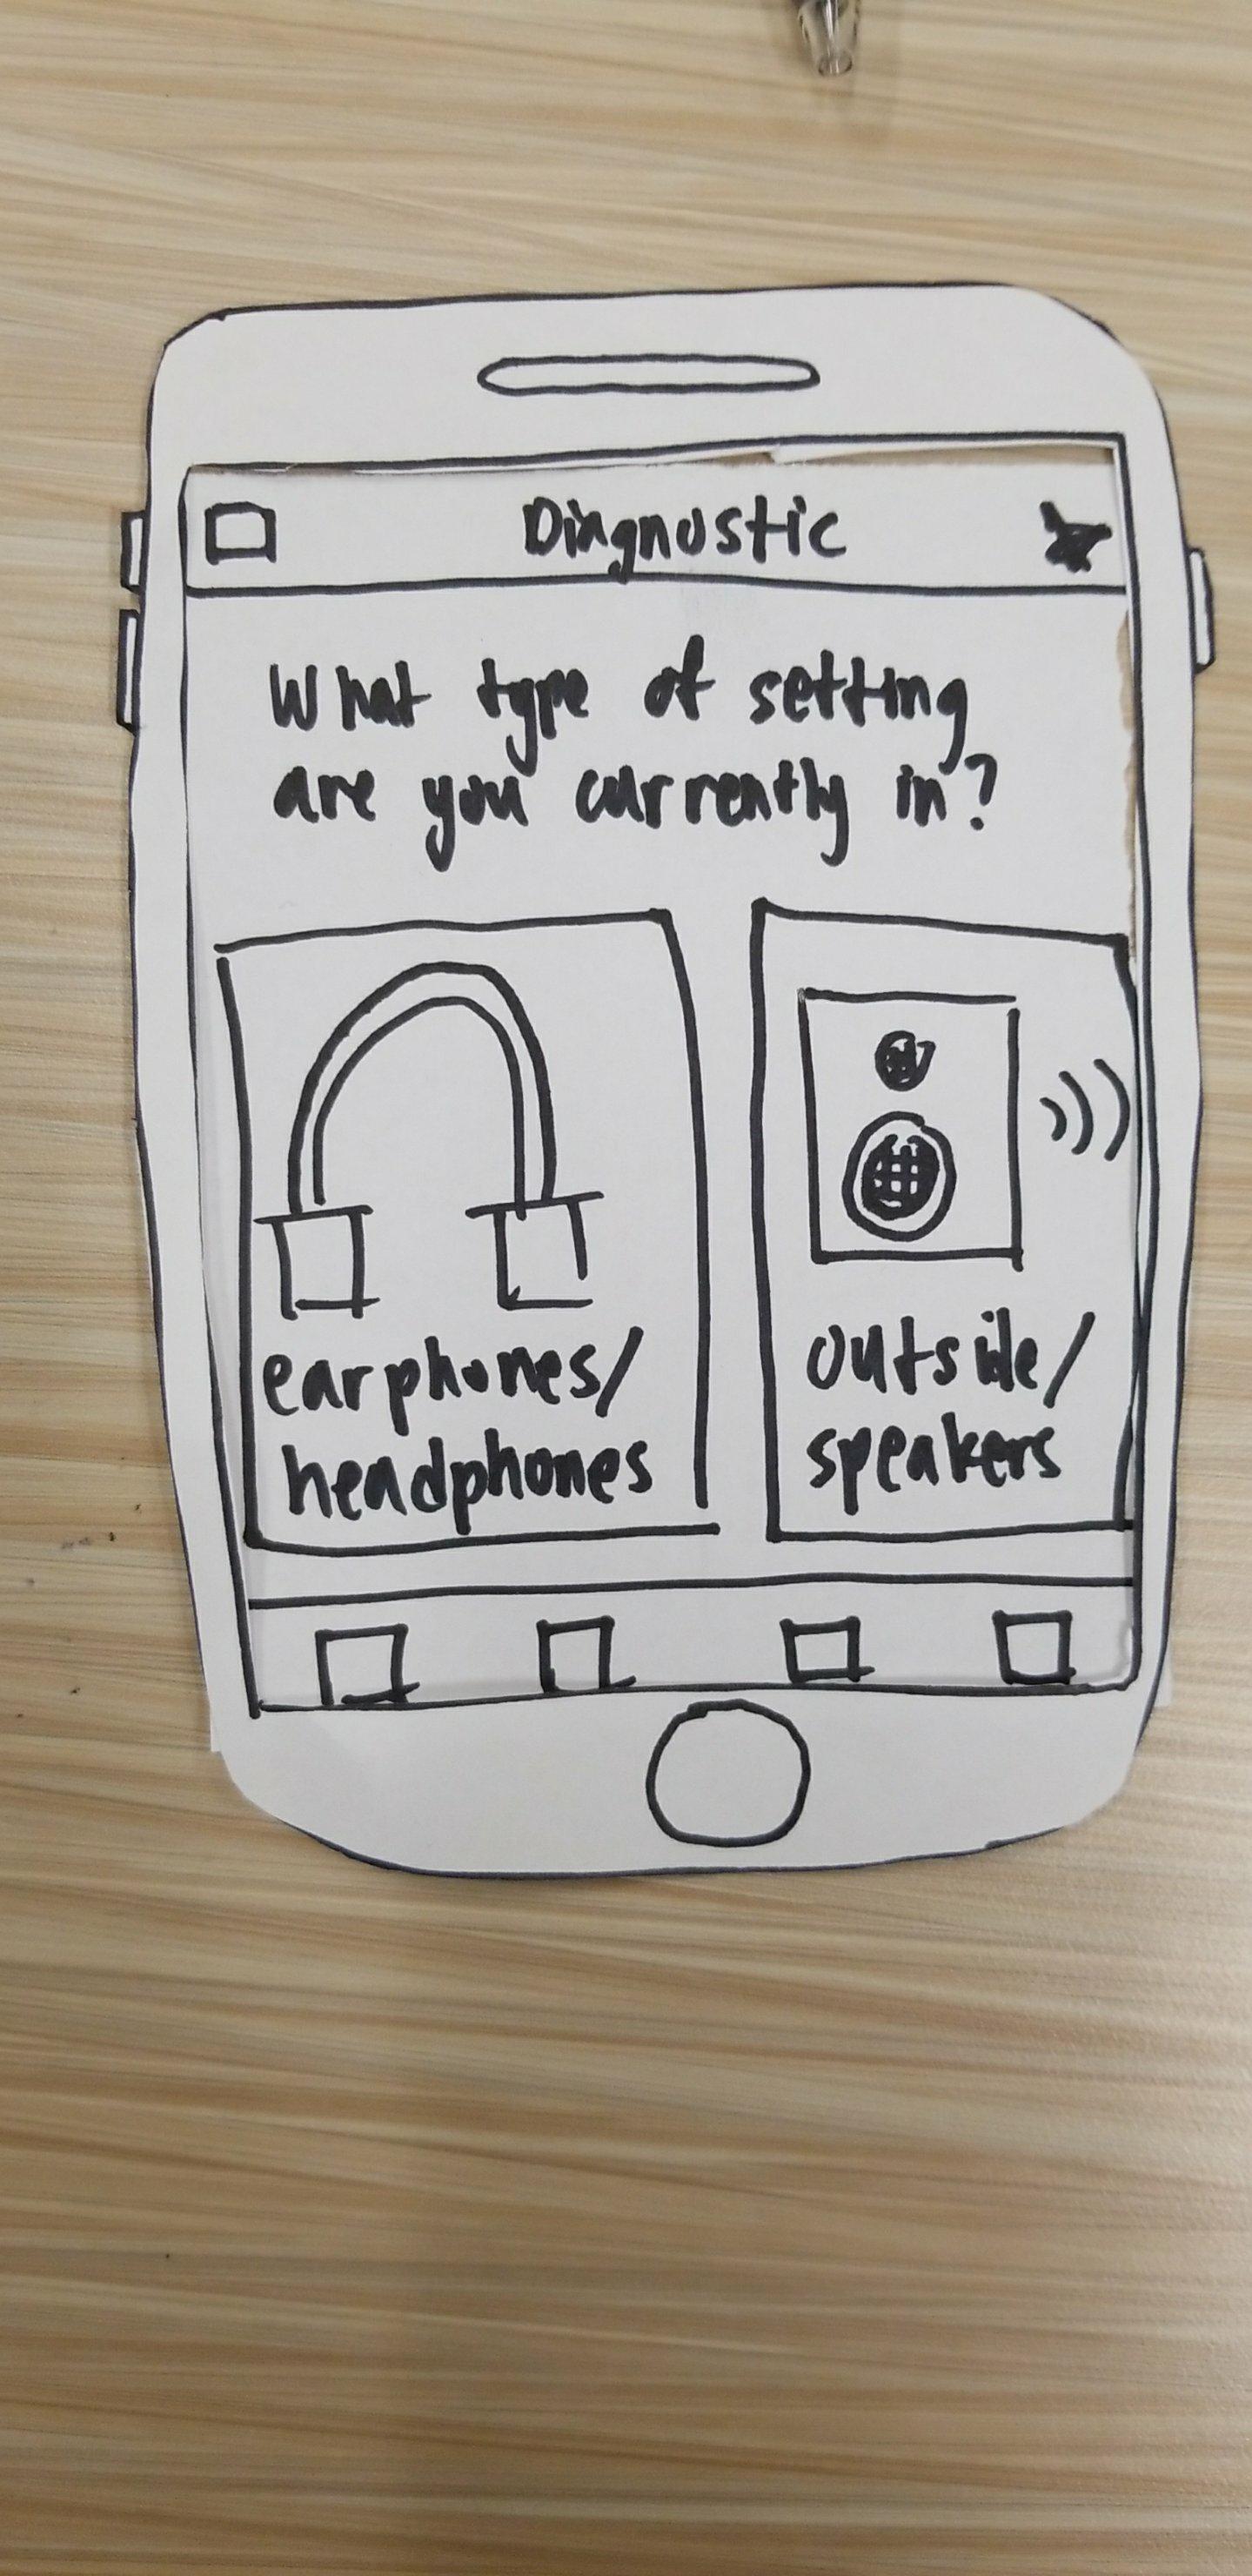 Diagnostic
What type of setting
are you currently in?
earphones/
headphones
outside/
speakers